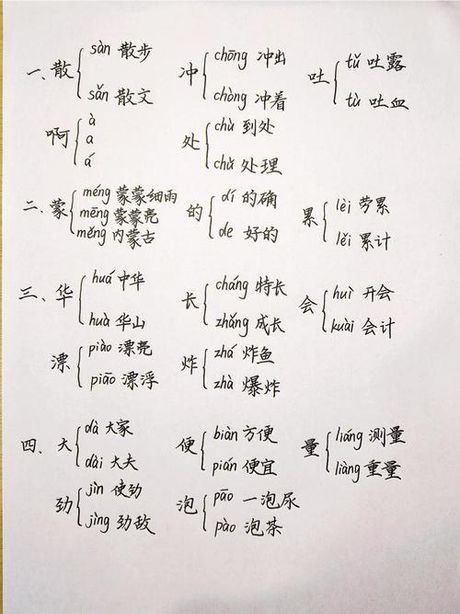 一、散 sàn 散步 sǎn 散文 冲 chōng 冲出 chòng 冲着 吐 tǔ 吐露 tù 吐血
啊 à a á 处 chù 到处 chǔ 处理
二、蒙 méng 蒙蒙细雨 mēng 蒙蒙亮 měng 内蒙古 的 dí 的确 de 好的 累 lèi 劳累 lěi 累计
三、华 huá 中华 huà 华山 长 cháng 特长 zhǎng 成长 会 huì 开会 kuài 会计
漂 piào 漂亮 piāo 漂浮 炸 zhá 炸鱼 zhà 爆炸
四、大 dà 大家 dài 大夫 便 biàn 方便 pián 便宜 量 liáng 测量 liàng 重量
劲 jìn 使劲 jìng 劲敌 泡 pāo 一泡尿 pào 泡茶